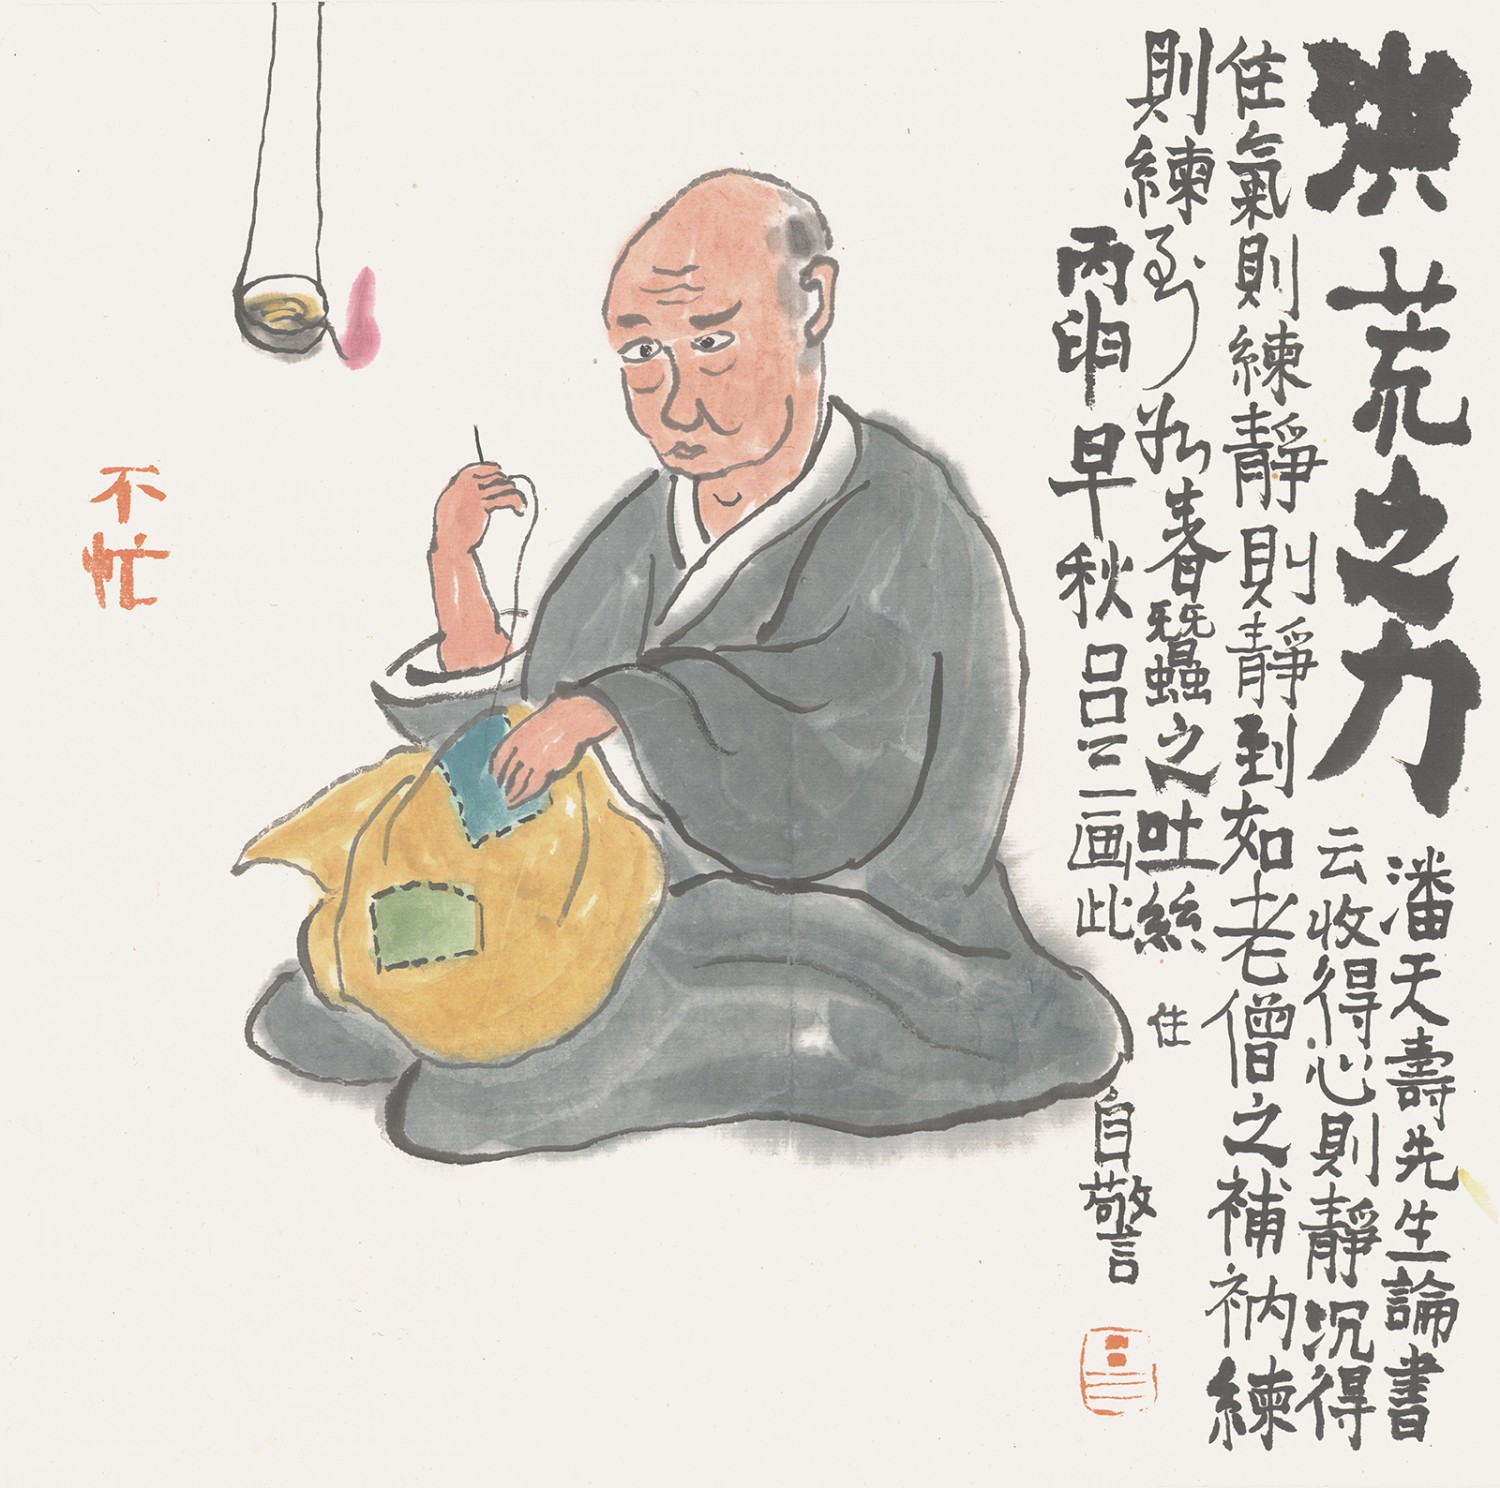 洪荒之力
潘天壽先生論書
云收得心則靜沉得
住氣則練靜則靜到如老僧之補衲練
則練到如春蠶之吐絲
住
丙申早秋吕三画此
自警
吕三
不忙